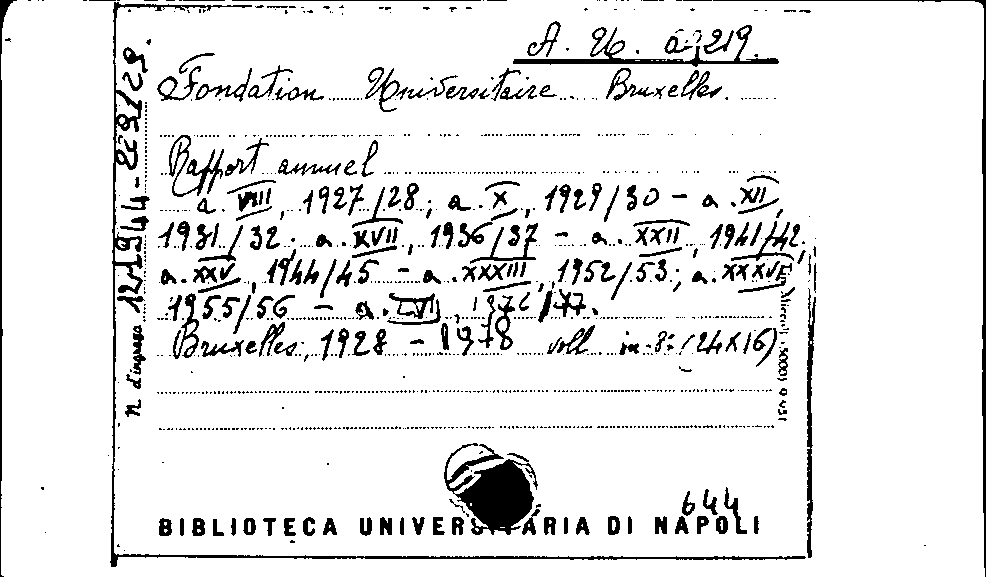 A. U. a 219.
Fondation Universitaire Bruxelles.
Rapport annuel
a. VIII, 1927/28; a. X, 1929/30 - a. XII,
1931/32; a. XVII, 1936/37 - a. XXII, 1941/42;
a. XXV, 1944/45 - a. XXXIII, 1952/53; a. XXXVI,
1955/56 - a. LVII, 1976/77.
Bruxelles, 1928 - 1978 voll. in-8° (24x16)
N. d'ingresso
644
BIBLIOTECA UNIVERSITARIA DI NAPOLI